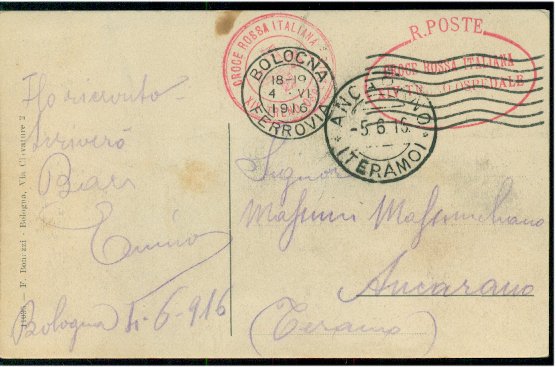 R. POSTE
CROCE ROSSA ITALIANA
CROCE ROSSA ITALIANA
OSPEDALE
BOLOGNA
18-19
4 · VI
1916
FERROVIA
ANCARANO
-5.6.16.
(TERAMO)
Ho ricevuto
scriverò
Baci
Emino
Bologna 4-6-916
Signor
Massimi Massimiliano
Ancarano
(Teramo)
- Bologna, Via Clavature 2